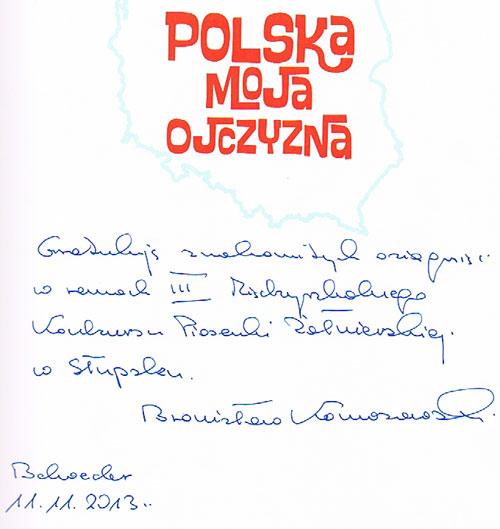 POLSKA
MOJA
OJCZYZNA
Gratuluję znakomitych osiągnięć
w ramach III Międzyszkolnego
Konkursu Piosenki Żołnierskiej.
w Słupsku.
Bronisław Komorowski.
Belweder
11.11.2013.